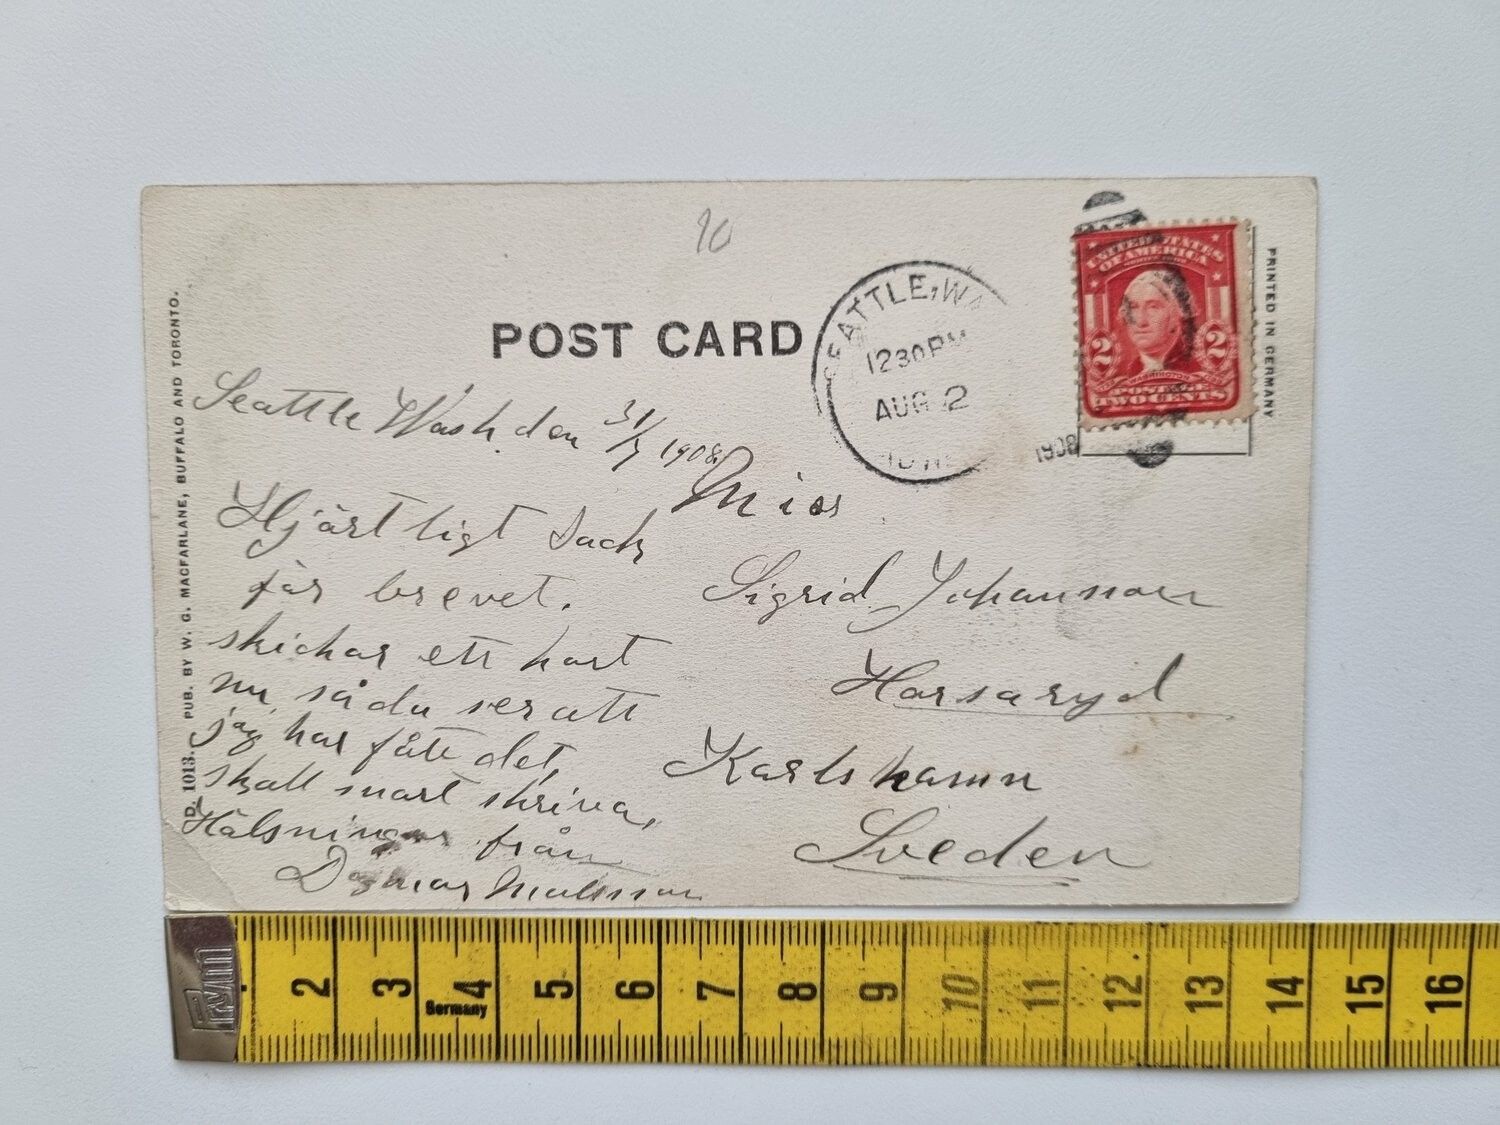 90
POST CARD
SEATTLE, WA
12 30 PM
AUG 2
1908
UNITED STATES
OF AMERICA
2 2
WASHINGTON
TWO CENTS
PRINTED IN GERMANY
D. 1013. PUB. BY W. G. MACFARLANE, BUFFALO AND TORONTO.
Seattle Wash. den 31/7 1908.
Hjärtligt tack
för brevet.
skickar ett kort
nu så du ser att
jag har fått det,
skall snart skriva.
Hälsningar från
Dagmar
Miss
Sigrid Johansson
Horsaryd
Karlshamn
Sveden
Germany
2 3 4 5 6 7 8 9 10 11 12 13 14 15 16